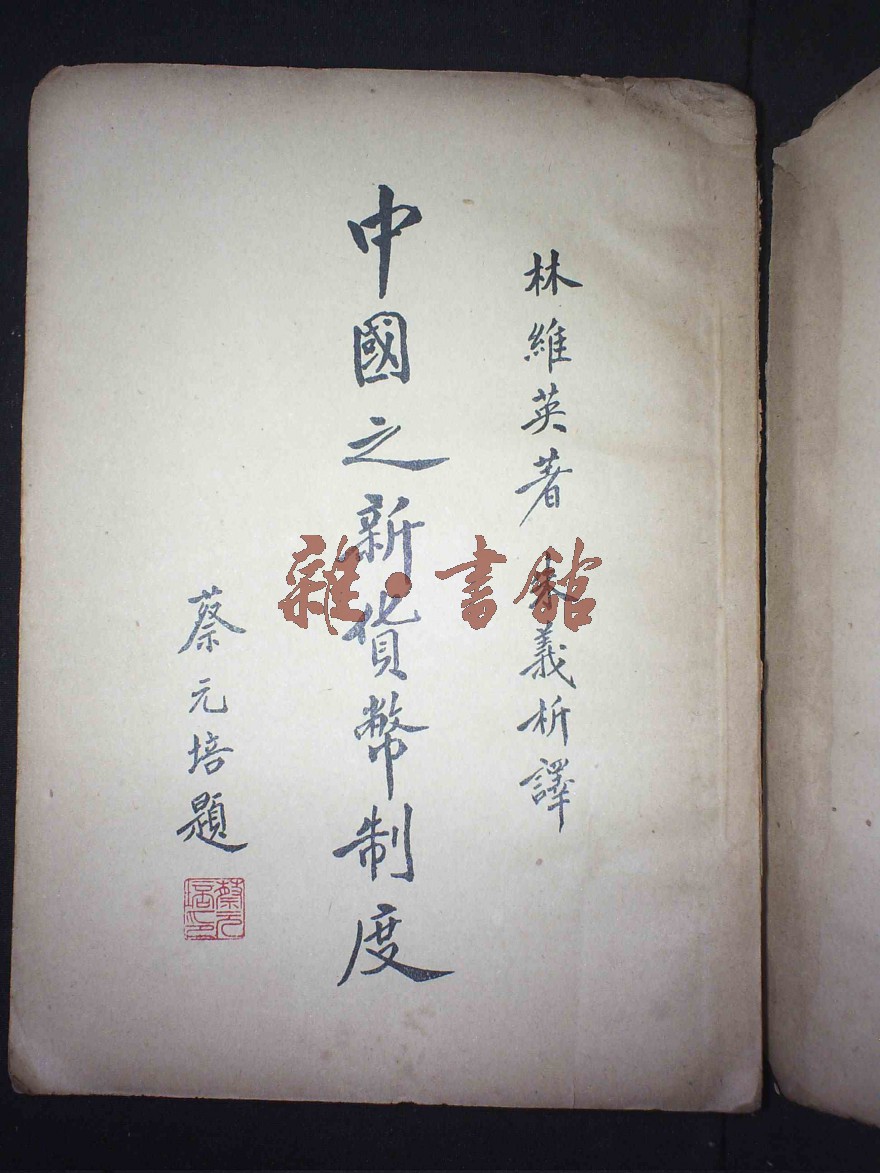 林維英著 朱義析譯
中國之新貨幣制度
蔡元培題
蔡元培印
雜·書館